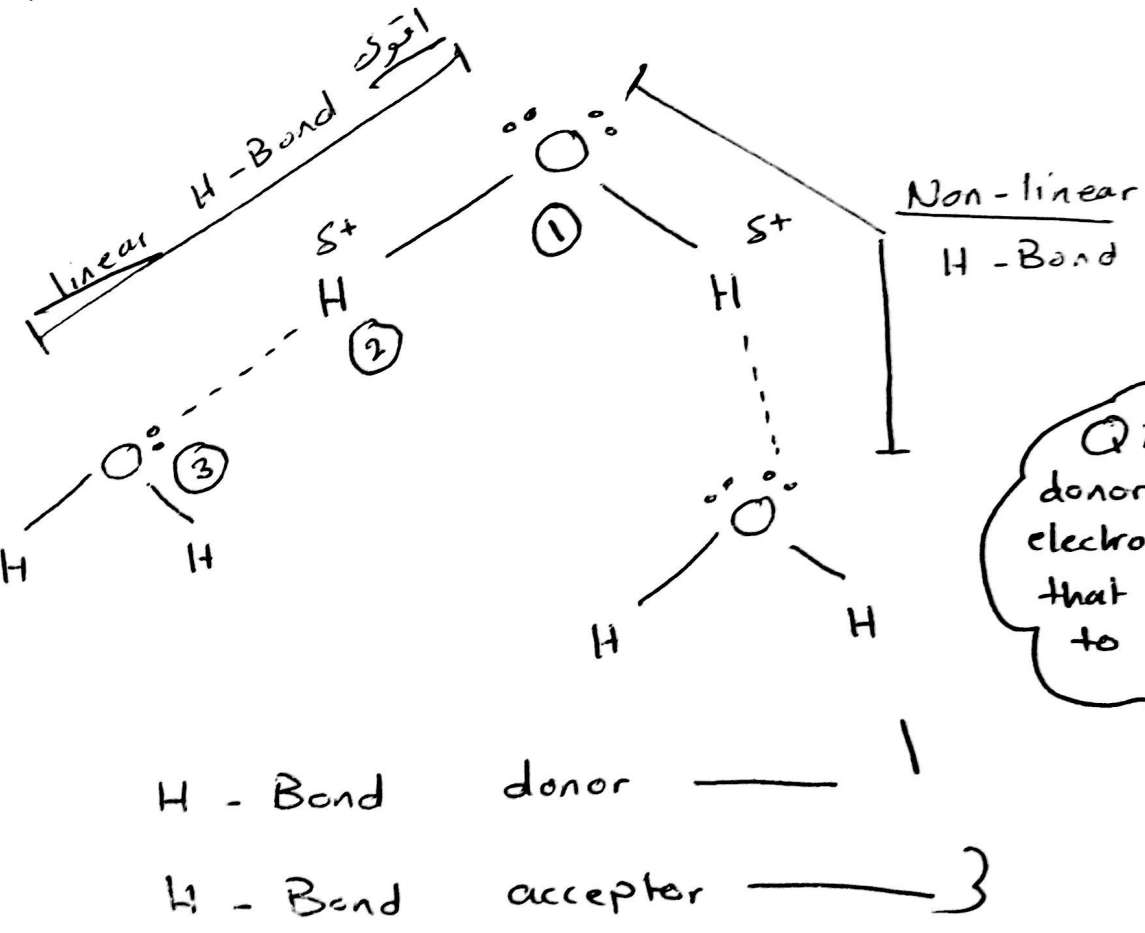 linear H-Bond اقوى
O
①
δ+
δ+
Non-linear
H-Bond
H
H
②
O
③
H
H
O
H
H
Q
donor
electro
that
to
H - Bond donor — 1
H - Bond acceptor — 3